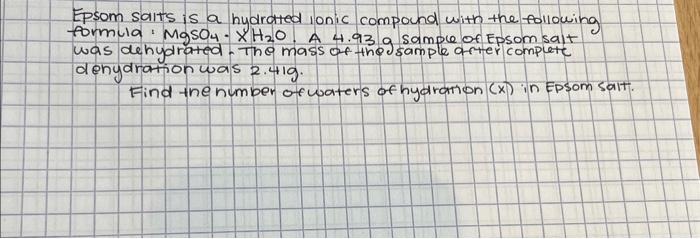 Epsom salts is a hydrated ionic compound with the following
formula: MgSO4 · XH2O. A 4.93 g sample of Epsom salt
was dehydrated. The mass of the sample after complete
dehydration was 2.41g.
Find the number of waters of hydration (x) in Epsom salt.